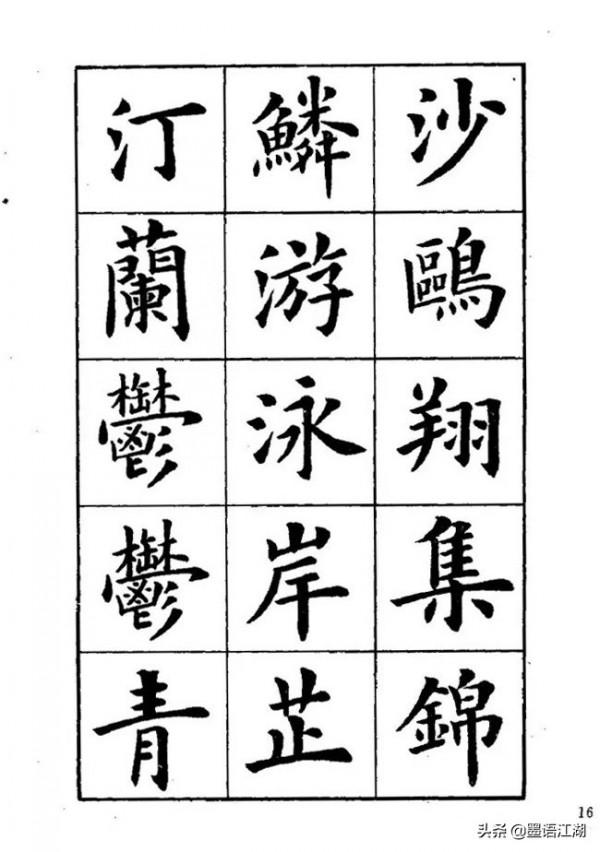 沙鷗翔集錦
鱗游泳岸芷
汀蘭鬱鬱青
16
头条@墨语江湖